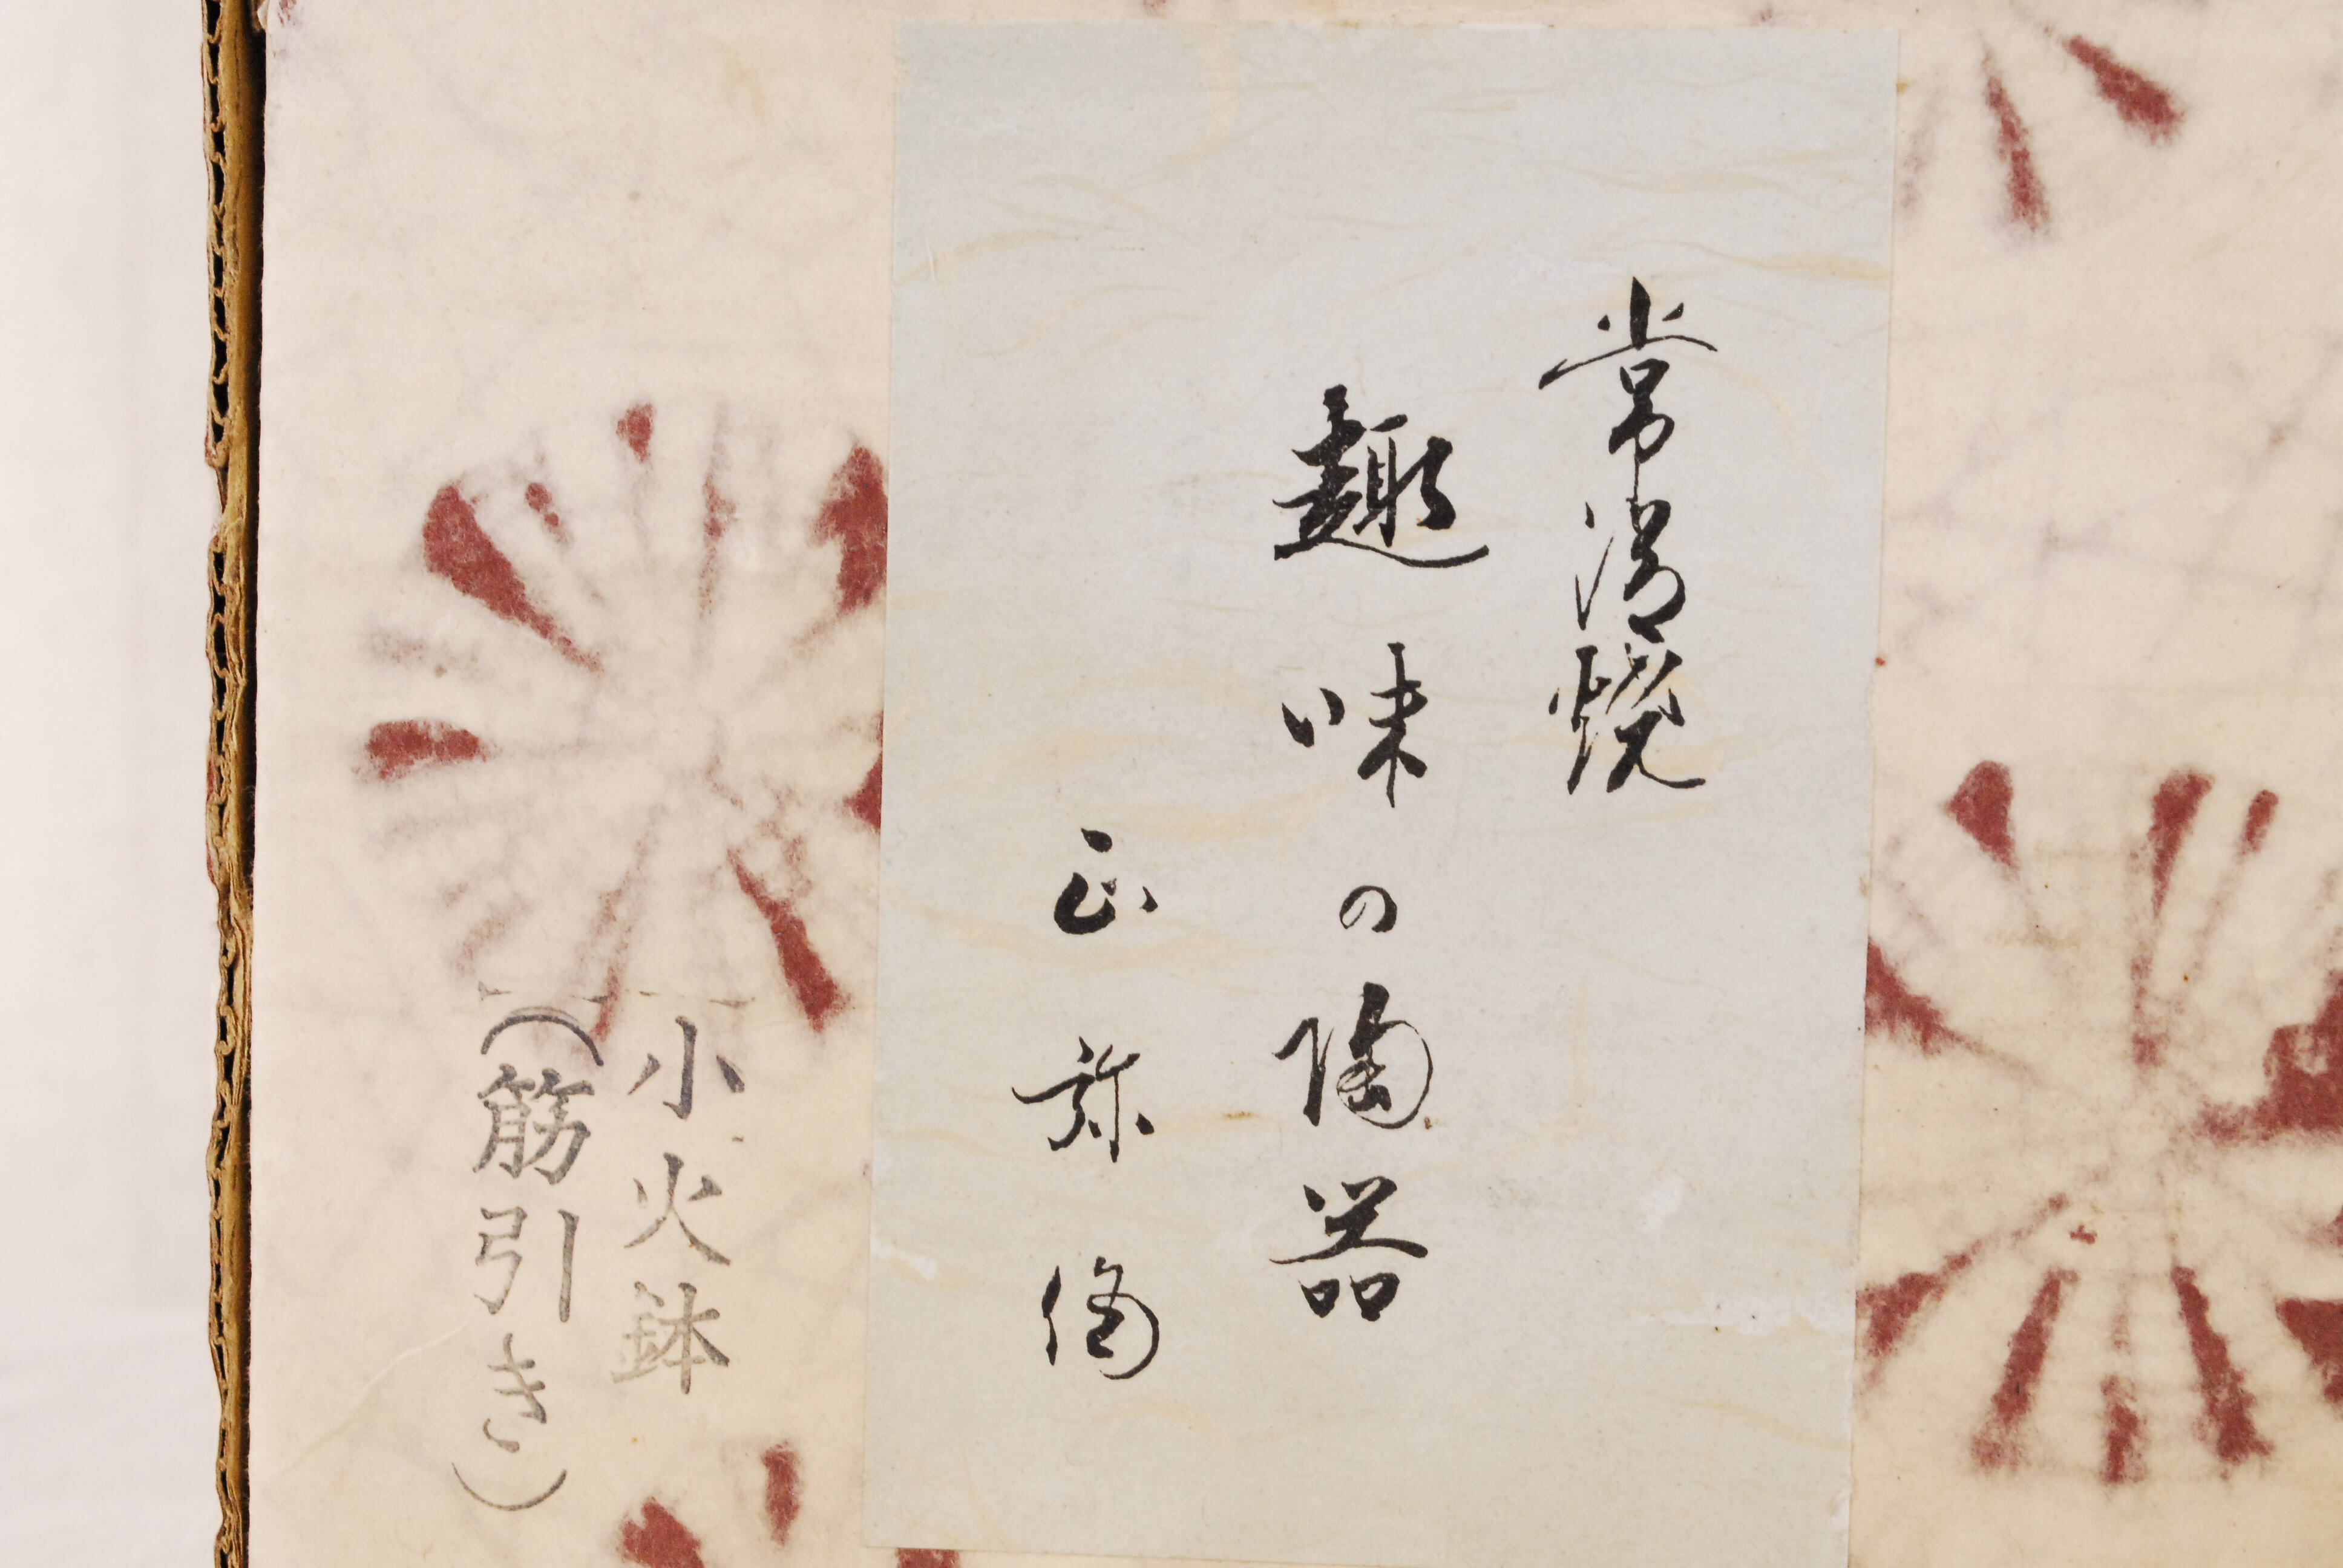 常滑焼
趣味の陶器
正弥陶
小火鉢
(筋引き)